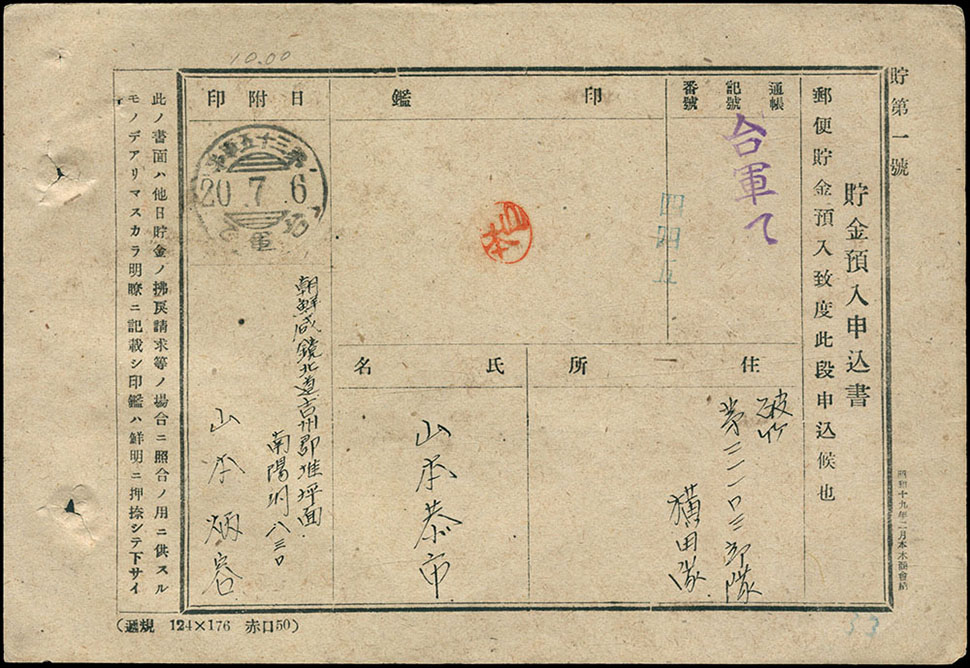 10.00
貯第一號
貯金預入申込書
郵便貯金預入致度此段申込候也
昭和十九年二月
通帳
記號
番號
台軍て
四四五
印鑑
山本
日附印
20.7.6
住所
第三一一〇三部隊
横田隊
氏名
山本恭市
朝鮮咸鏡北道吉州郡雄坪面
南陽洞八三〇
山本炳容
此ノ書面ハ他日貯金ノ拂戻請求等ノ場合ニ照合ノ用ニ供スル
モノデアリマスカラ明瞭ニ記載シ印鑑ハ鮮明ニ押捺シテ下サイ
(遞規 124×176 赤口50)
53